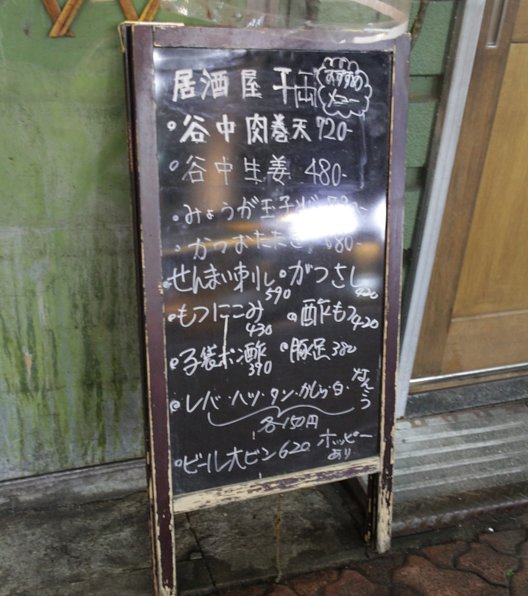 居酒屋 千両 おすすめメニュー
・谷中肉巻天 720-
・谷中生姜 480-
・みょうが玉子
・かつおたたき 680-
・せんまい刺し 590 ・がつさし 420
・もつにこみ 430 ・酢もつ 420
・子袋ポン酢 390 ・豚足 380
・レバ・ハツ・タン・かしら・白・なんこつ
各150円
・ビール大ビン620 ホッピーあり